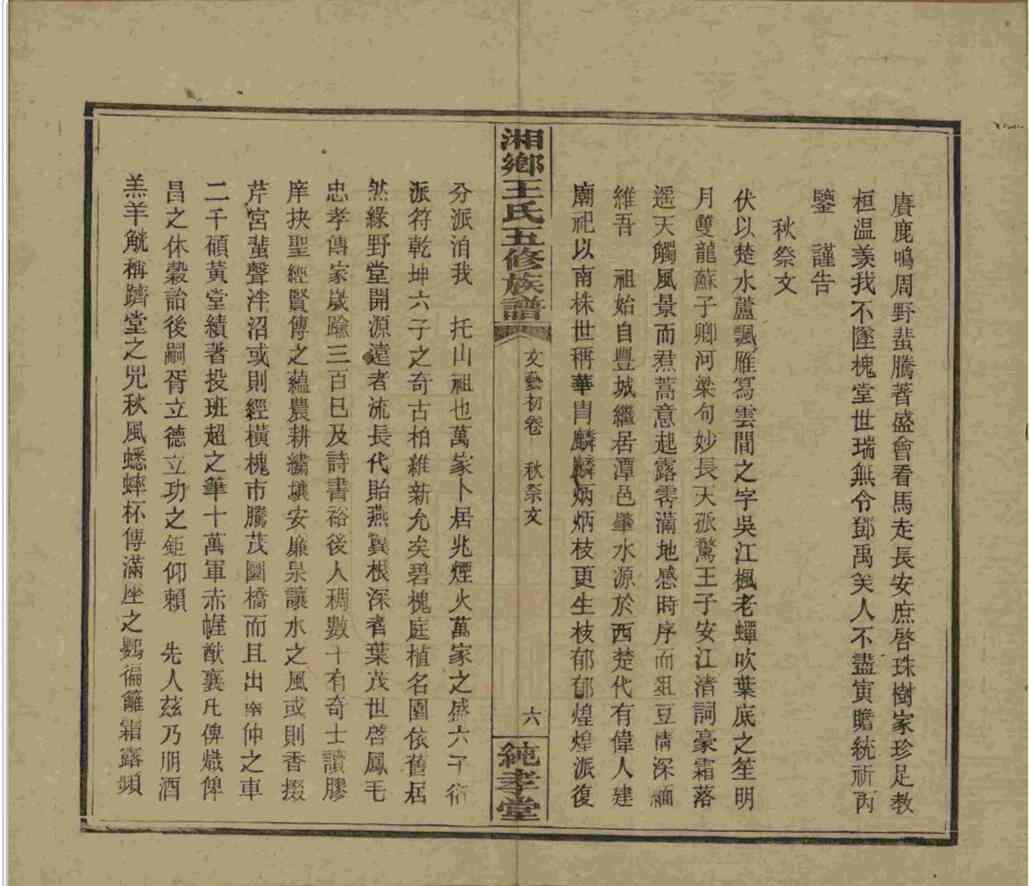 賡鹿鳴周野蜚騰著盛會看馬走長安庶啓珠樹家珍足敎
桓温羨我不墜槐堂世瑞無令鄧禹笑人不盡寅瞻統祈丙
鑒　謹告
秋祭文
伏以楚水蘆飄雁寫雲間之字吳江楓老蟬吹葉底之笙明
月雙龍蘇子卿河梁句妙長天孤鶩王子安江清詞豪霜落
遥天觸風景而焄蒿意起露零滿地感時序而俎豆情深緬
維吾　祖始自豐城繼居潭邑肇水源於西楚代有偉人建
廟祀以南株世稱華胄麟麟炳炳枝更生枝郁郁煌煌派復
湘鄉王氏五修族譜　文藝初卷　秋祭文　六　純孝堂
分派泊我　托山祖也萬家卜居兆煙火萬家之盛六子衍
派符乾坤六子之奇古柏維新允矣碧槐庭植名園依舊居
然綠野堂開源遠者流長代貽燕翼根深者葉茂世啓鳳毛
忠孝傳家歲踰三百巳及詩書裕後人稠數十有奇士讀膠
庠抉聖經賢傳之蘊農耕繡壤安廉泉讓水之風或則香掇
芹宮蜚聲泮沼或則經橫槐市騰茂圜橋而且出 仲之車
二千碩黃堂績著投班超之筆十萬軍赤幄猷襄凡俾熾俾
昌之休穀詒後嗣胥立德立功之鉅仰賴　先人茲乃朋酒
羔羊觥稱躋堂之兕秋風蟋蟀杯傳滿座之鸚徧籬霜露頻